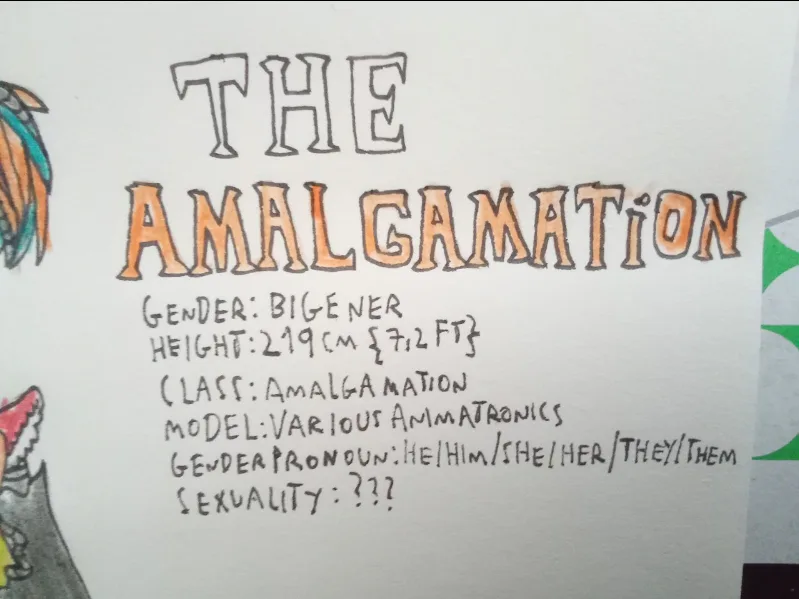 THE
AMALGAMATiON
GENDER: BIGENER
HEIGHT:219CM {7,2FT}
CLASS: AMALGAMATION
MODEL:VARIOUS ANIMATRONICS
GENDERPRONOUN:HE/HIM/SHE/HER/THEY/THEM
SEXUALITY:???